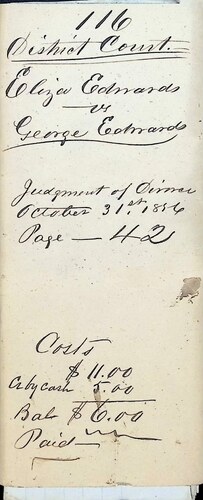 116
District Court.
Eliza Edwards
vs
George Edwards
Judgment of Divorce
October 31.st 1856
Page — 42
Costs
$ 11.00
Cr by cash 5.00
Bal $ 6.00
Paid